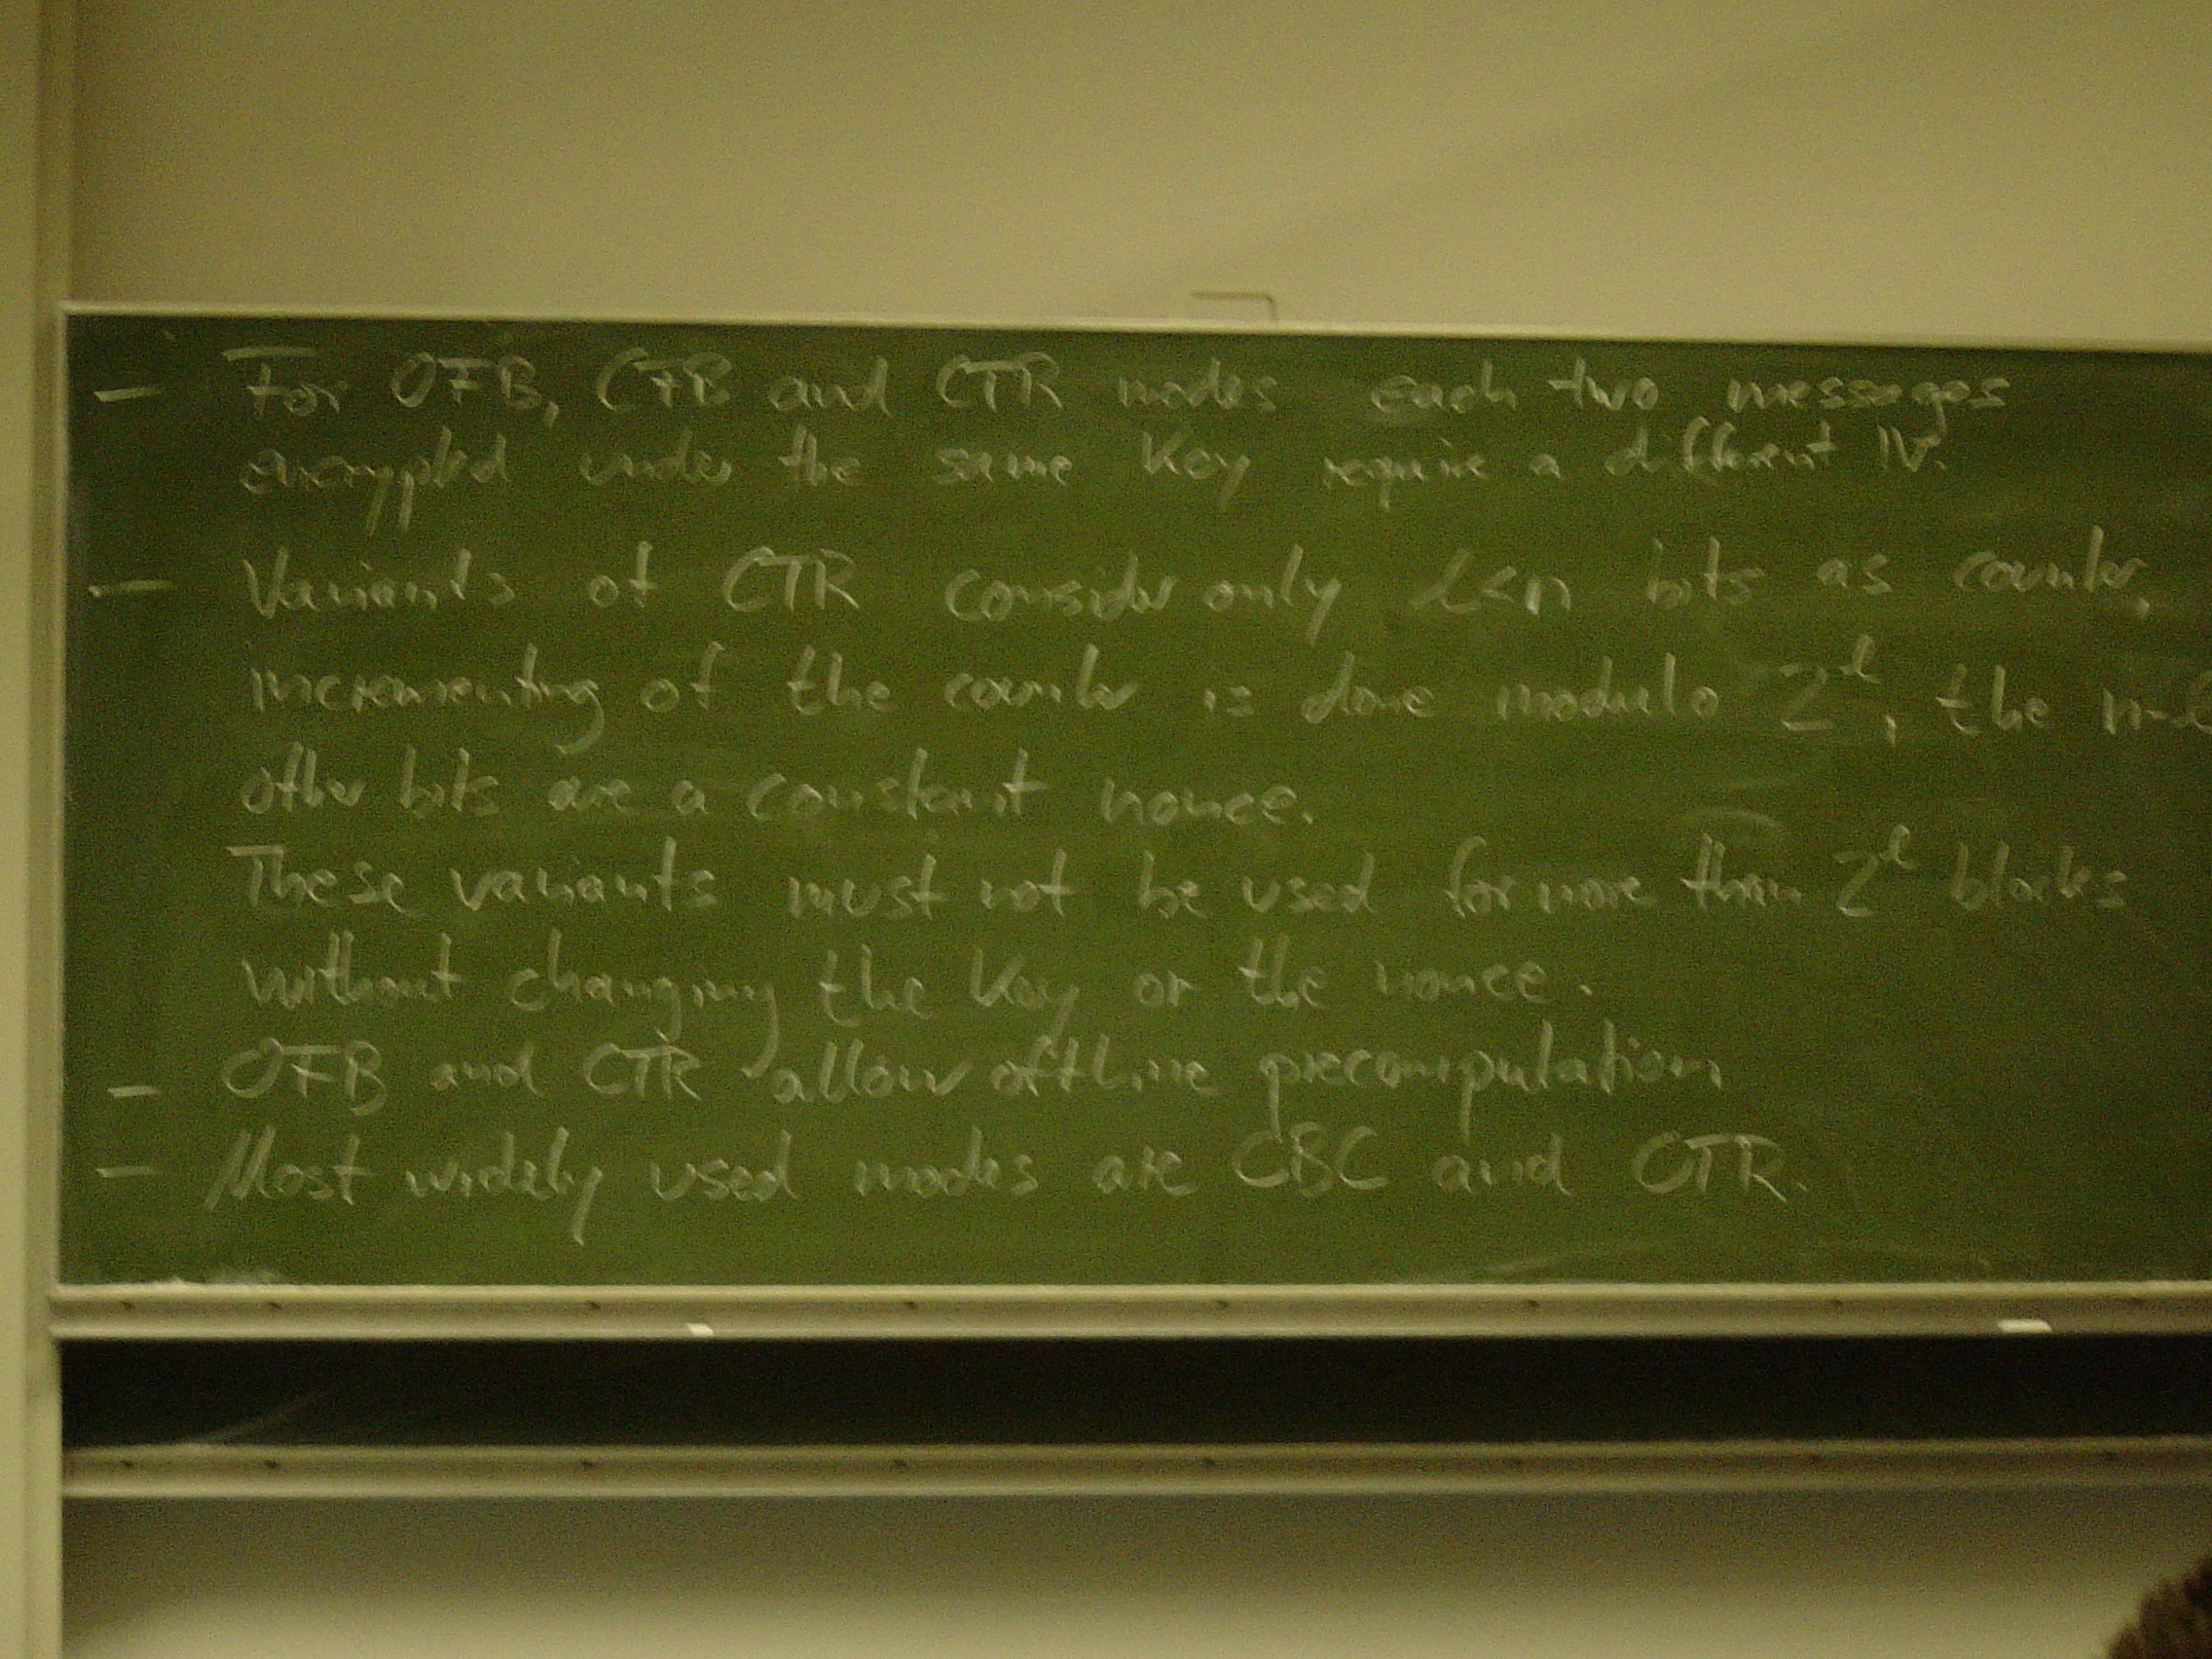 — For OFB, CFB and CTR modes each two messages
encrypted under the same key require a different IV.
— Variants of CTR consider only l<n bits as counter,
incrementing of the counter is done modulo 2^l, the n-l
other bits are a constant nonce.
These variants must not be used for more than 2^l blocks
without changing the key or the nonce.
— OFB and CTR allow offline precomputation
— Most widely used modes are CBC and CTR.